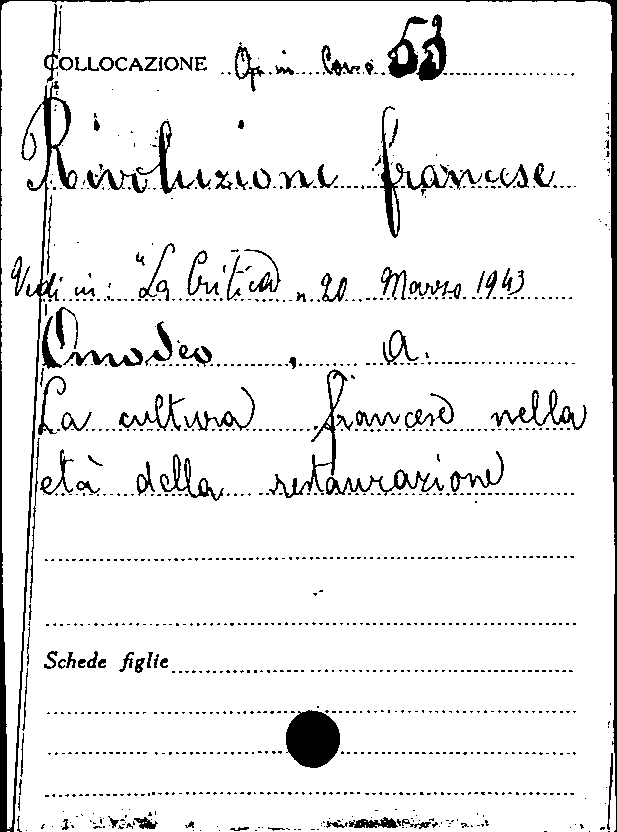 COLLOCAZIONE Op. in Corso 53
Rivoluzione francese
Vedi in: "La Critica" 20 Marzo 1943
Omodeo, A.
La cultura francese nella
età della restaurazione
Schede figlie